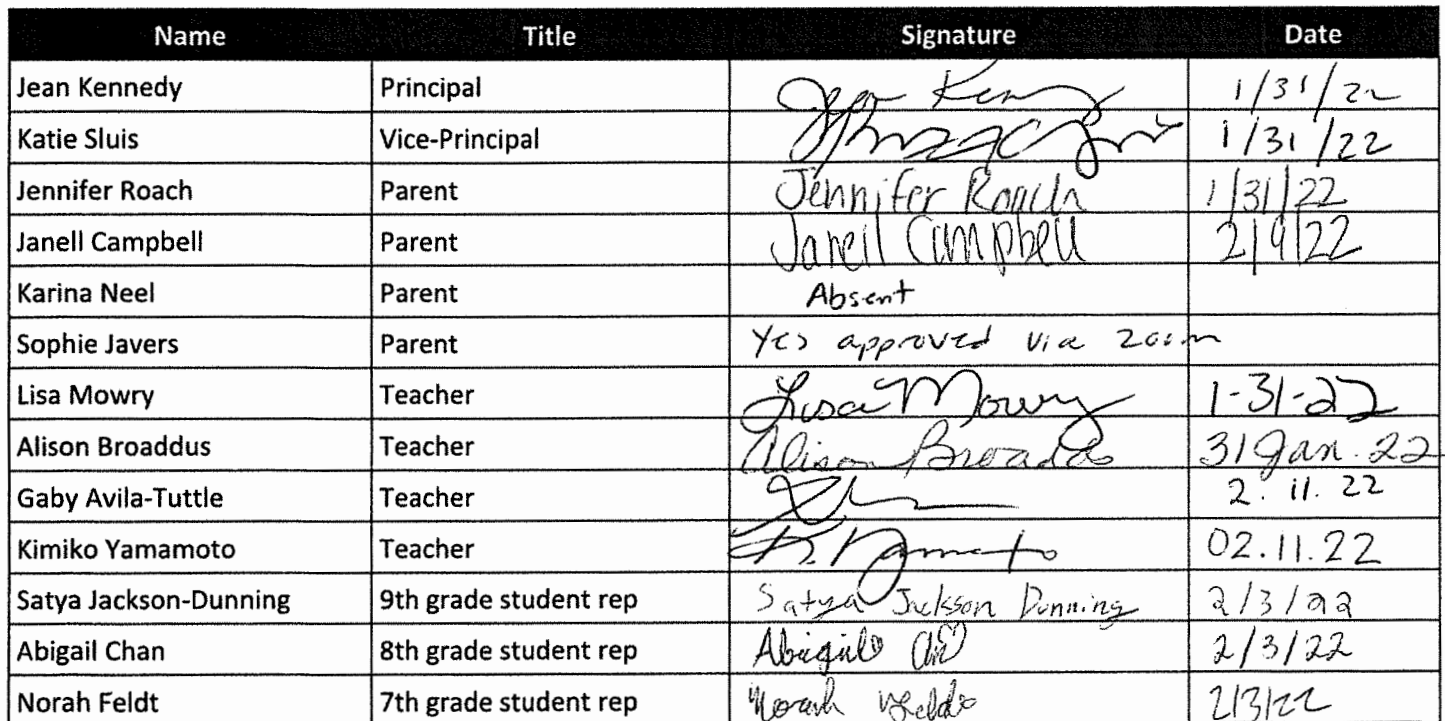 Name Title Signature Date
Jean Kennedy Principal 1/31/22
Katie Sluis Vice-Principal 1/31/22
Jennifer Roach Parent Jennifer Roach 1/31/22
Janell Campbell Parent Janell Campbell 2/9/22
Karina Neel Parent Absent
Sophie Javers Parent Yes approved via zoom
Lisa Mowry Teacher Lisa Mowry 1-31-22
Alison Broaddus Teacher Alison 31 Jan. 22
Gaby Avila-Tuttle Teacher 2. 11. 22
Kimiko Yamamoto Teacher 02.11.22
Satya Jackson-Dunning 9th grade student rep Satya Jackson Dunning 2/3/22
Abigail Chan 8th grade student rep 2/3/22
Norah Feldt 7th grade student rep Norah 2/3/22